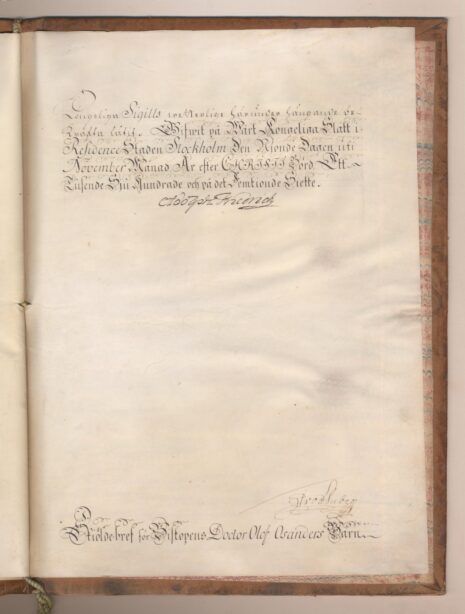 Kongeliga Sigills wederbörlige härunder hängande be-
kräfta låtit. Gifwit på Wårt Kongeliga Slått i
Residence Staden Stockholm Den Nionde Dagen uti
November Månad År efter CHRISTI Börd Ett
Tusende Siu Hundrade och på det Femtionde Siette.
Adolph Friedrich
Skiöldebref för Biskopens Doctor Olof Osanders Barn